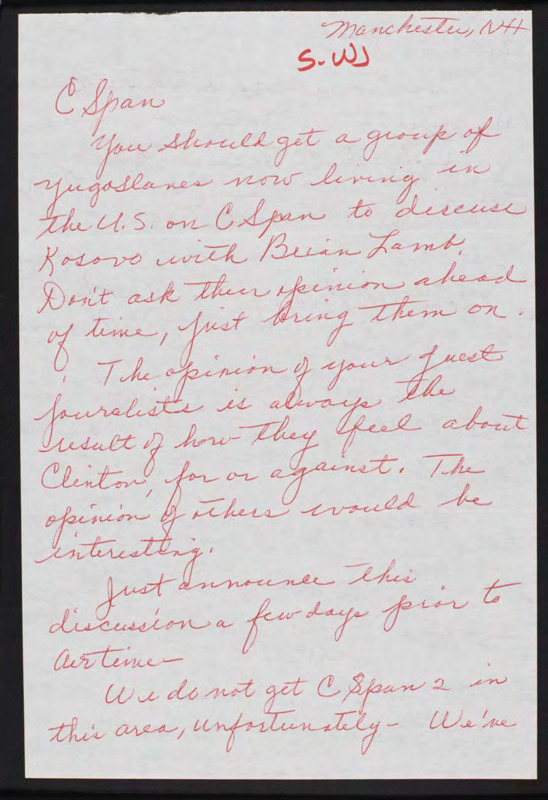 Manchester, NH
S-WJ
C Span
You should get a group of
Yugoslaves now living in
the U.S. on C Span to discuss
Kosovo with Brian Lamb.
Don't ask their opinion ahead
of time, just bring them on.
The opinion of your guest
jouralists is always the
result of how they feel about
Clinton, for or against. The
opinion of others would be
interestting.
Just announce this
discussion a few days prior to
air time—
We do not get C Span 2 in
this area, unfortunately - We've